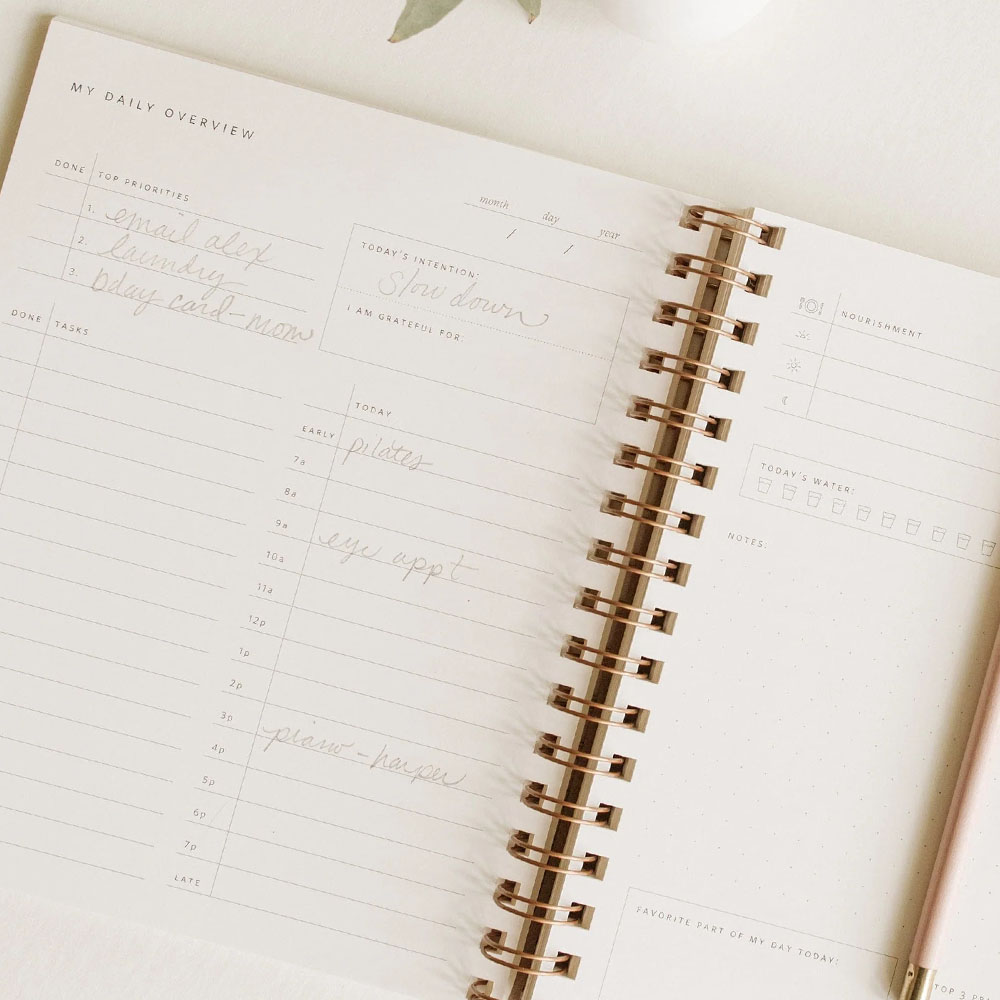 MY DAILY OVERVIEW
DONE TOP PRIORITIES
1. email alex
2. laundry
3. bday card - mom
month day year
/ /
TODAY'S INTENTION:
slow down
I AM GRATEFUL FOR:
DONE TASKS
TODAY
EARLY pilates
7a
8a
9a eye appt
10a
11a
12p
1p
2p
3p piano - harper
4p
5p
6p
7p
LATE
NOURISHMENT
TODAY'S WATER:
NOTES:
FAVORITE PART OF MY DAY TODAY:
TOP 3